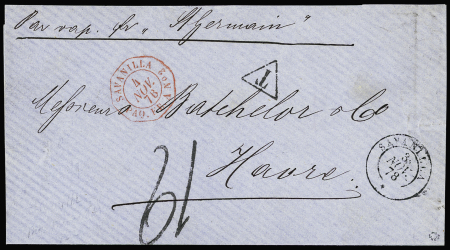 Par vap. fr „ St Germain "
SAVANILLA
4
NOV.
78
PAQ.
T
Messieurs Batchelor & Co
Havre
SAVANILLA
3
NOV.
78